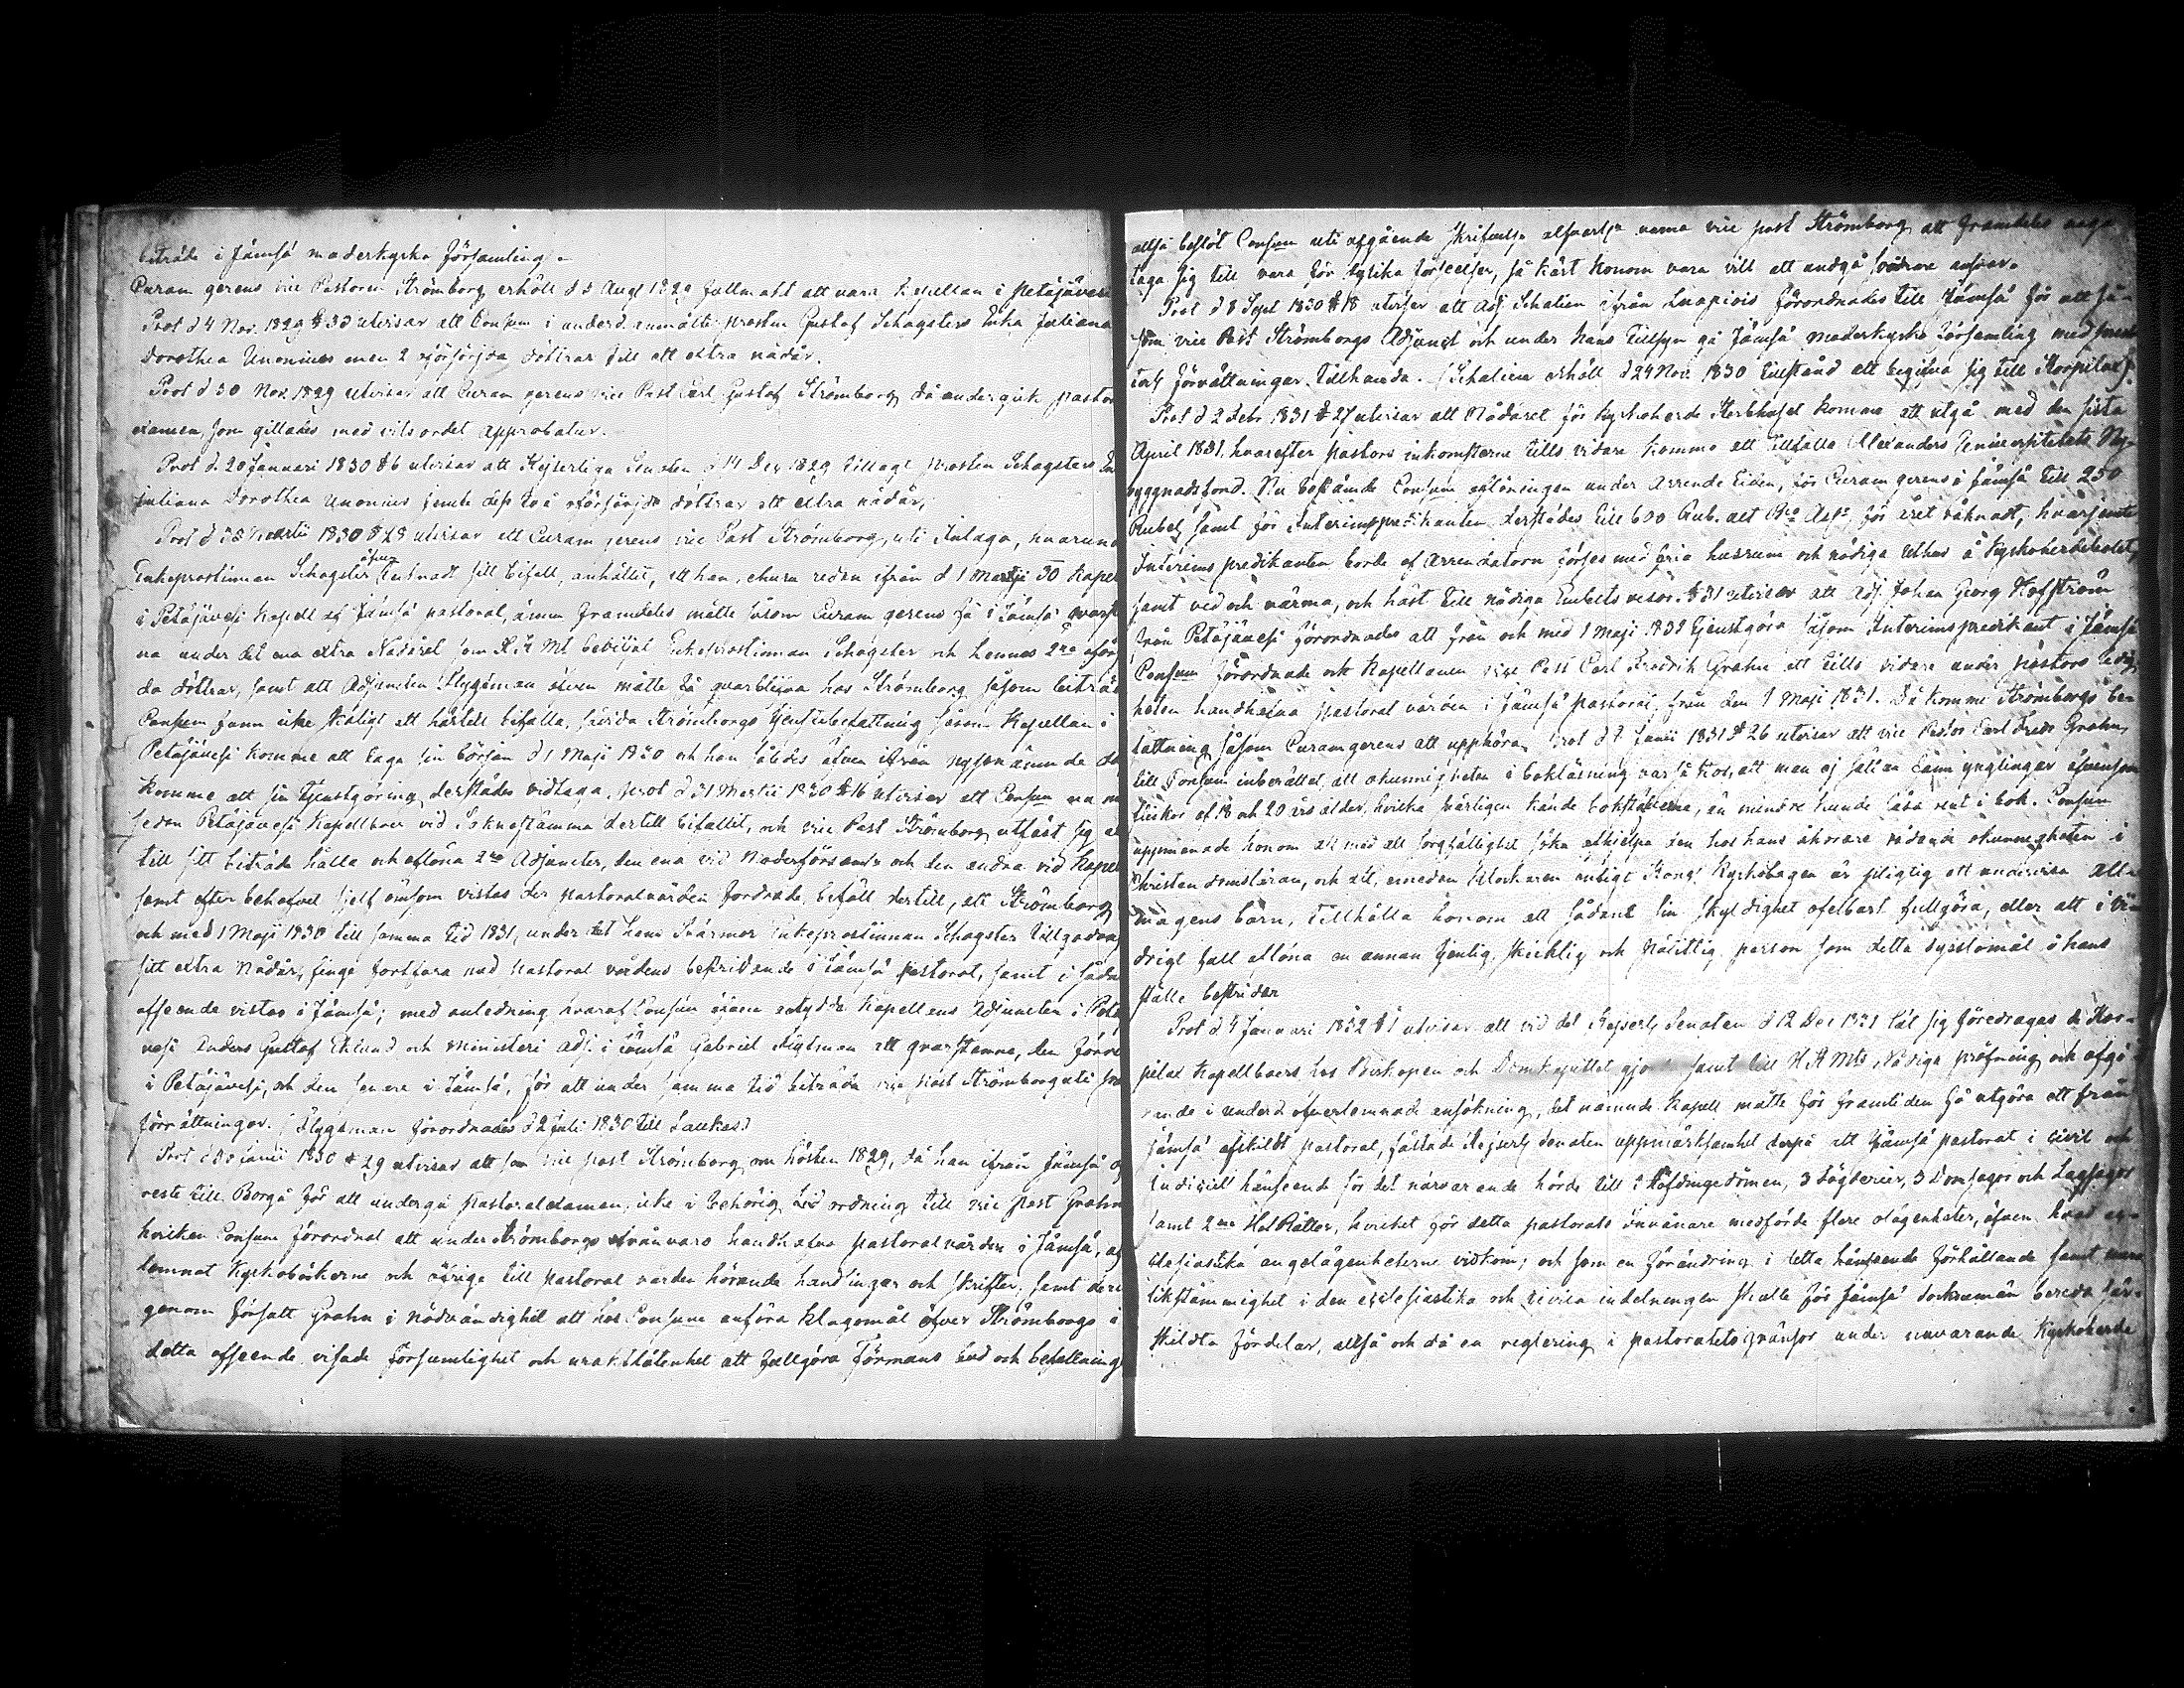 biträde i Jämsä moderkyrko församling.
Curam gerens vice Pastoren Strömborg erhöll d 5 Aug 1829 fullmakt att vara Kapellan i Petäjäves
Prot d 4 Nov. 1829 § 33 utvisar att Consum i underd. anmälte prosten Gustaf Schogsters Enka Juliana
Dorothea Unonius men 2 oförsörjda döttrar till ett extra nådår.
Prot d 30 Nov. 1829 utvisar att Curam gerens vice Past Carl Gustaf Strömborg då undergick pastor
examen, som gillades med vitsordet approbatur.
Prot d. 20 Januari 1830 § 6 utvisar att Kejserliga Senaten d 14 Dec 1829 tillagt prosten Schogsters En
Juliana Dorothea Unonius jemte dess två oförsörjda döttrar ett extra nådår,
Prot d Martii 1830 § 28 utvisar att Curam gerens vice Past Strömborg, uti Inlaga, hvarund
Enkeprostinnan Schogster äfven tecknadt sitt bifall, anhållit, att han, ehuru redan ifrån d 1 Martji 30 Kapel
i Petäjävesi Kapell af Jämsä pastorat, ännu framdeles måtte såsom Curam gerens få i Jämsä qvarst
na under det ena extra Nådåret som H. K Mt beviljat Enkeprostinnan Schogster och hennes 2ne oförs
da döttrar, samt att Adjuncten Flygtman även måtte få qvarblifva hos Strömborg såsom biträd
Consum fann icke skäligt att härtill bifalla, Strömborgs tjenstebefattning såsom Kapellan i
Petäjävesi komme att taga sin början d 1 Maji 1830 och han således äfven ifrån nyssnämnde
komme att sin tjenstgöring derstädes vidtaga, prot d 31 Martii 1830 § 16 utvisar att Consum nu m
sedan Petäjävesi Kapellboer vid Sockenstämma dertill bifallit, och vice Past Strömborg utfäst sig at
till sitt biträde hålla och aflöna 2ne Adjuncter, den ena vid Moderförsaml och den andra vid Kapel
samt efter behofvet sjelf ömsom vistas der pastoralvården fordrade, biföll dertill, att Strömborg
och med 1 Maji 1830 till samma tid 1831, under det hans Svärmor Enkeprostinnan Schogster tillgodonj
sitt extra Nådår, finge fortfara med pastoral vårdens bestridande i Jämsä pastorat, samt i såda
afseende vistas i Jämsä; med anledning hvaraf Consum Kapellans Adjuncten i Petä
vesi Anders Gustaf Eklund och ministeri adj. i Jämsä Gabriel Flygtman att qvarstanna, den förre
i Petäjävesi, och den senare i Jämsä, för att under samma tid biträda vice Past Strömborg uti
förrättningar. (Flygtman förordnades d 2 Juli 1830 till Laukas)
Prot d 30 Junii 1830 § 29 utvisar att som vice past Strömborg, om hösten 1829, då han ifrån Jämsä
reste till Borgå för att undergå pastoralexamen, icke i behörig tid ordning till vice past Grahn
hvilken Consum förordnat att under Strömborgs frånvaro handhafva pastoralvården i Jämsä, af
lemnat Kyrkoböckerne och öfrige till pastoral vården hörande handlingar och skrifter, samt deri
genom försatt Grahn i nödvändighet att hos Consum anföra klagomål öfver Strömborgs i
detta afseende visade försumlighet och uraktlåtenhet att fullgöra Förmans bud och befallning
altså beslöt Consum uti afgående skrifvelse alfvarligt varna vice past Strömborg att framdeles noga
taga sig till vara för dylika förseelser, så kärt honom vara vill att undgå svårare ansvar.
Prot d 8 Sept 1830 § 18 utvisar att Adj. Schalien ifrån Luopiois förordnades till Jämsä för att så-
som vice Past Strömborgs Adjunct och under hans tillsyn gå Jämsä Moderkyrko församling med
förrättningar tillhanda. (Schalien erhöll d 24 Nov 1830 tillstånd att begifva sig till Korpilax)
Prot d 2 Febr 1831 § 27 utvisar att Nådåret för kyrkoherde Sterbhuset komme att utgå med den sista
April 1831, hvarefter pastors inkomsterne tills vidare komme att tillfalla Alexanders Universitetets Ny-
byggnadsfond. Nu bestämde Consum aflöningen under Arrende tiden, för Curam gerens i Jämsä till 250
Rubel samt för Interimspredikanten derstädes till 600 Rub. allt Bco Ass. för året räknadt, hvarjemte
Interims predikanten borde af Arrendatorn förses med fria husrum och nödiga Uthus å Kyrkoherdebolet,
samt ved och värma, och häst till nödiga Embets resor. § 31 utvisar att Adj. Johan Georg Hofström
från Petäjävesi förordnades att från och med 1 Maji 1831 tjenstgöra såsom Interimspredikant i Jämsä
Consum förordnade och Kapellanen vice Past Carl Fredrik Grahn att tills vidare under pastors ledig
heten handhafva pastoral vården i Jämsä pastorat, från den 1 Maji 1831. Då komme Strömborgs be-
fattning såsom Curam gerens att upphöra, Prot d 8 Junii 1831 § 26 utvisar att vice Pastor Carl Fredr Grahn
till Consum inberättat, att okunnigheten i bokläsning var så stor, att man ej sällan fann ynglingar äfvensom
flickor af 18 och 20 års ålder, hvilka knappast kände bokstäfverna, än mindre kunde läsa rent i bok. Consum
uppmanade honom att med all sorgfällighet söka afhjelpa den hos hans åhörare rådande okunnigheten i
Christendomsläran, och att, emedan Klockaren enligt Kongl Kyrkolagen är pligtig att undervisa all-
mogens barn, tillhålla honom att sådant sin skyldighet ofelbart fullgöra, eller att i vi-
drigt fall aflöna en annan tjenlig, skicklig och pålitlig person som detta sysslomål å hans
ställe bestrider
Prot d 4 Januari 1832 § 1 utvisar att vid det Kejserlig Senaten d 12 Dec 1831 låt sig föredragas de Kor-
pilax Kapellboers hos Biskopen och Domkapitlet gjorda samt till H. K Mts Nådiga pröfning och afgö
rande i underd. öfverlemnade ansökning, det nämnde Kapell måtte för framtiden få utgöra ett från
Jämsä afskildt pastorat, fästade Kejserlig Senaten uppmärksamhet derpå att Jämsä pastorat i civil och
Judiciell hänseende för det närvarande hörde till 2 Höfdingedömen, 3 Fögderier, 3 Domsagor och Lagsagor
samt 2ne Hof Rätter, hvilket för detta pastorats Invånare medförde flere olägenheter, äfven hvad ec-
clesiastika angelägenheterne vidkom; och som en förändring i detta hänseende förhållande samt mera
likstämmighet i den ecclesiastika och civila indelningen skulle för Jämsä Socknemän bereda sär-
skildta fördelar, altså och då en reglering i pastoratets gränsor under nuvarande Kyrkoherde